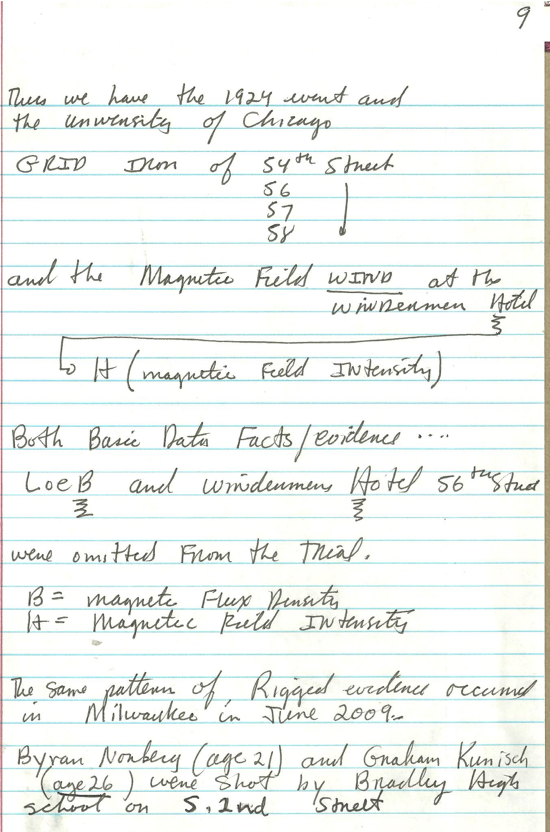 9
Thus we have the 1924 event and
the university of Chicago
GRID Iron of 54th Street
56
57
58
and the Magnetic Field WIND at the
Windermere Hotel
H (magnetic Field INtensity)
Both Basic Data Facts/evidence ....
LoeB and Windermere Hotel 56th Street
were omitted From the Trial.
B = magnetic Flux Density
H = Magnetic Field INtensity
The same pattern of Rigged evidence occurred
in Milwaukee in June 2009..
Bryan Norberg (age 21) and Graham Kunisch
(age 26) were shot by Bradley High
school on S. 2nd Street